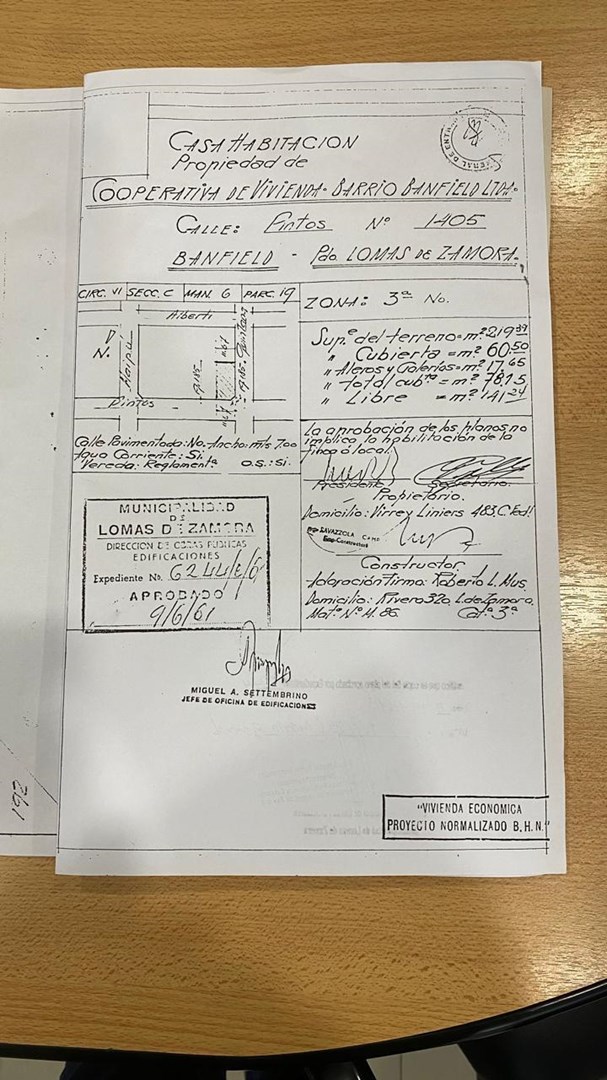 CASA HABITACION
Propiedad de
COOPERATIVA DE VIVIENDA - BARRIO BANFIELD LTDA.
CALLE: Pintos Nº 1405
BANFIELD - Pdo. LOMAS DE ZAMORA.
CIRC. VI SECC. C MAN. 6 PARC. 19
Alberti
N.
Maipú
Pintos
Calle Pavimentada: No. Ancho: mts 7.00
Agua Corriente: Si.
Vereda: Reglamentª O.S.: si.
ZONA: 3ª No.
Sup.e del terreno = m² 219.39
" Cubierta = m² 60.50
" Aleros y Galerias = m² 17.65
" total cubta = m² 78.15
" Libre = m² 141.24
La aprobación de los planos no
implica la habilitación de la
finca ó local.
Presidente Secretario.
Propietario.
Domicilio: Virrey Liniers 483, C.
SAVAZZOLA
Constructor.
Firma: Roberto L. Mus.
Domicilio: Rivera 320. L. de Zamora.
Mat. Nº M. 86. Catª. 3ª
MUNICIPALIDAD
DE
LOMAS DE ZAMORA
DIRECCION DE OBRAS PUBLICAS
EDIFICACIONES
Expediente No.
APROBADO
9/6/61
MIGUEL A. SETTEMBRINO
JEFE DE OFICINA DE EDIFICACIONES
"VIVIENDA ECONOMICA
PROYECTO NORMALIZADO B. H. N."